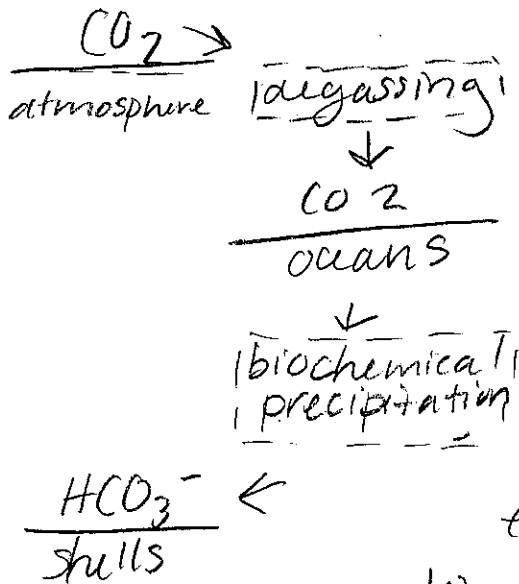 CO2
atmosphere
degassing
CO2
oceans
biochemical
precipitation
HCO3-
shells